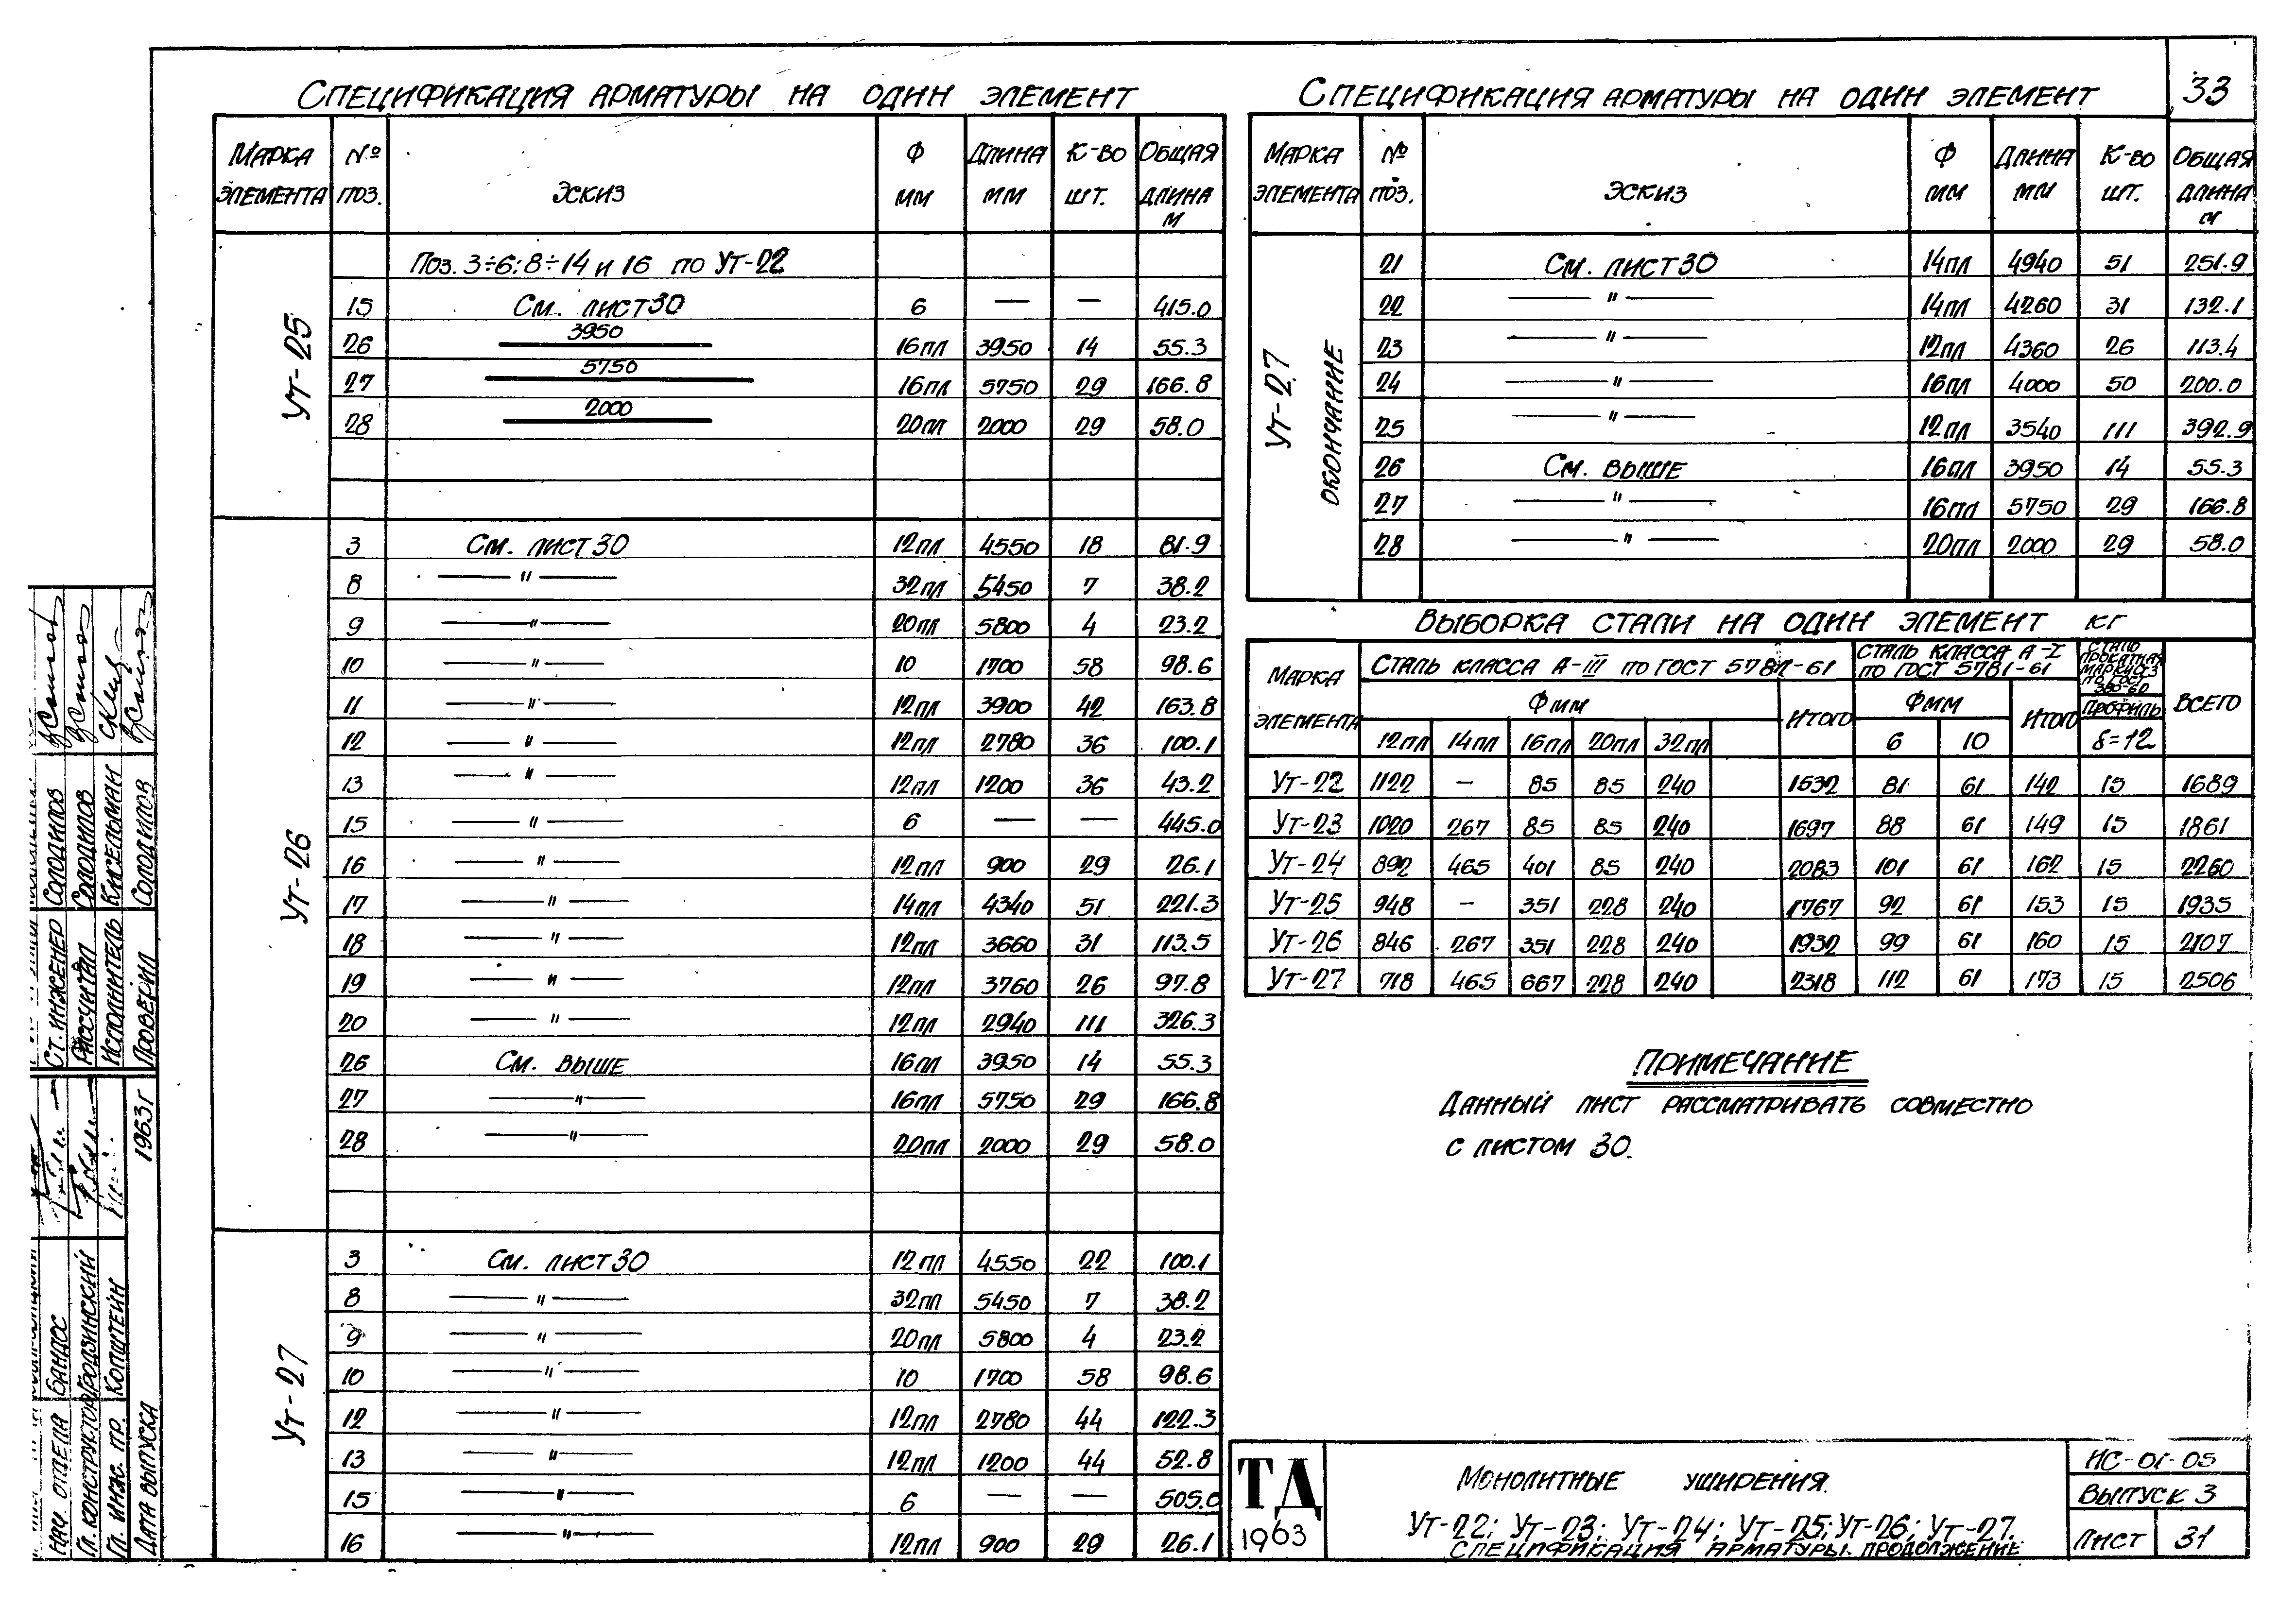 33
Спецификация арматуры на один элемент
Марка элемента | № поз. | Эскиз | Ф мм | Длина мм | К-во шт. | Общая длина м
Ут-25
Поз. 3÷6; 8÷14 и 16 по Ут-22
15 | См. лист 30 | 6 | — | — | 415.0
26 | 3950 | 16пл | 3950 | 14 | 55.3
27 | 5750 | 16пл | 5750 | 29 | 166.8
28 | 2000 | 20пл | 2000 | 29 | 58.0
Ут-26
3 | См. лист 30 | 12пл | 4550 | 18 | 81.9
8 | —"— | 32пл | 5450 | 7 | 38.2
9 | —"— | 20пл | 5800 | 4 | 23.2
10 | —"— | 10 | 1700 | 58 | 98.6
11 | —"— | 12пл | 3900 | 42 | 163.8
12 | —"— | 12пл | 2780 | 36 | 100.1
13 | —"— | 12пл | 1200 | 36 | 43.2
15 | —"— | 6 | — | — | 445.0
16 | —"— | 12пл | 900 | 29 | 26.1
17 | —"— | 14пл | 4340 | 51 | 221.3
18 | —"— | 12пл | 3660 | 31 | 113.5
19 | —"— | 12пл | 3760 | 26 | 97.8
20 | —"— | 12пл | 2940 | 111 | 326.3
26 | См. выше | 16пл | 3950 | 14 | 55.3
27 | —"— | 16пл | 5750 | 29 | 166.8
28 | —"— | 20пл | 2000 | 29 | 58.0
Ут-27
3 | См. лист 30 | 12пл | 4550 | 22 | 100.1
8 | —"— | 32пл | 5450 | 7 | 38.2
9 | —"— | 20пл | 5800 | 4 | 23.2
10 | —"— | 10 | 1700 | 58 | 98.6
12 | —"— | 12пл | 2780 | 44 | 122.3
13 | —"— | 12пл | 1200 | 44 | 52.8
15 | —"— | 6 | — | — | 505.0
16 | —"— | 12пл | 900 | 29 | 26.1
Спецификация арматуры на один элемент
Марка элемента | № поз. | Эскиз | Ф мм | Длина мм | К-во шт. | Общая длина м
Ут-27 окончание
21 | См. лист 30 | 14пл | 4940 | 51 | 251.9
22 | —"— | 14пл | 4260 | 31 | 132.1
23 | —"— | 12пл | 4360 | 26 | 113.4
24 | —"— | 16пл | 4000 | 50 | 200.0
25 | —"— | 12пл | 3540 | 111 | 392.9
26 | См. выше | 16пл | 3950 | 14 | 55.3
27 | —"— | 16пл | 5750 | 29 | 166.8
28 | —"— | 20пл | 2000 | 29 | 58.0
Выборка стали на один элемент кг
Марка элемента | Сталь класса А-III по ГОСТ 5781-61 | Сталь класса А-I по ГОСТ 5781-61 | Сталь прокатная марки Ст3 по ГОСТ 380-60 | Всего
Фмм | Итого | Фмм | Итого | Профиль
12пл | 14пл | 16пл | 20пл | 32пл | 6 | 10 | δ=12
Ут-22 | 1122 | — | 85 | 85 | 240 | 1532 | 81 | 61 | 142 | 15 | 1689
Ут-23 | 1020 | 267 | 85 | 85 | 240 | 1697 | 88 | 61 | 149 | 15 | 1861
Ут-24 | 892 | 465 | 401 | 85 | 240 | 2083 | 101 | 61 | 162 | 15 | 2260
Ут-25 | 948 | — | 351 | 228 | 240 | 1767 | 92 | 61 | 153 | 15 | 1935
Ут-26 | 846 | 267 | 351 | 228 | 240 | 1932 | 99 | 61 | 160 | 15 | 2107
Ут-27 | 718 | 465 | 667 | 228 | 240 | 2318 | 112 | 61 | 173 | 15 | 2506
Примечание
Данный лист рассматривать совместно
с листом 30.
ТД
1963
Монолитные уширения
Ут-22; Ут-23; Ут-24; Ут-25; Ут-26; Ут-27.
Спецификация арматуры. Продолжение
ИС-01-05
Выпуск 3
Лист 31
Ст. инженер Солодилов
Рассчитал Солодилов
Исполнитель Кисельман
Проверил Солодилов
Нач. отдела Бандос
Гл. конструктор Гродзинский
Гл. инж. пр. Копштейн
Дата выпуска 1963г